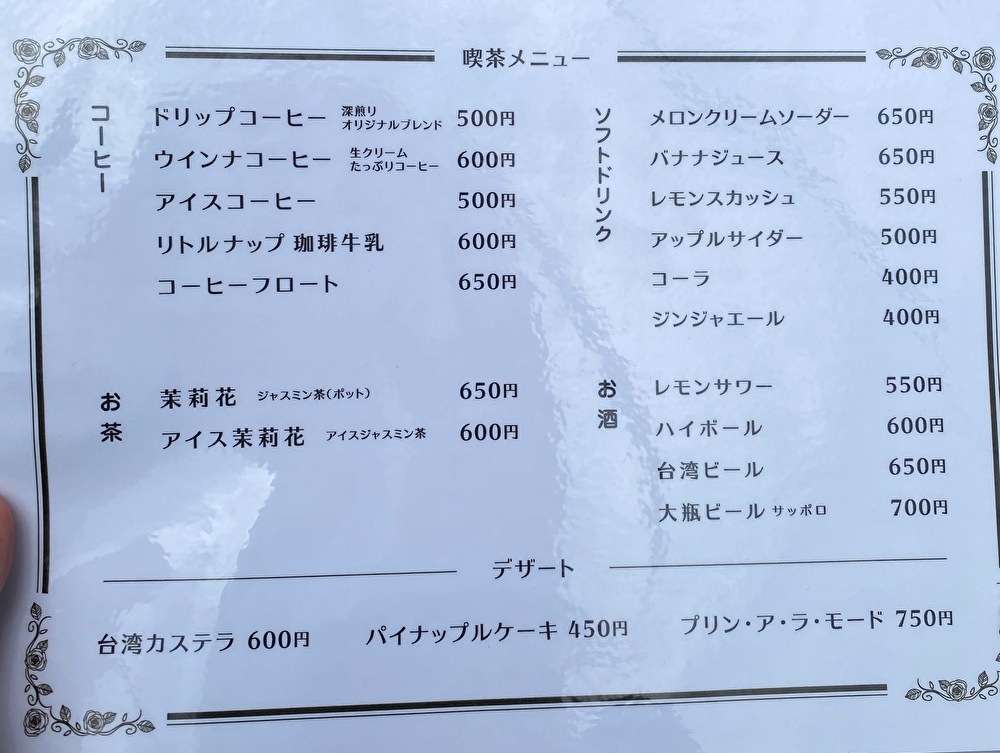 喫茶メニュー
コーヒー
ドリップコーヒー 深煎り オリジナルブレンド 500円
ウインナコーヒー 生クリーム たっぷりコーヒー 600円
アイスコーヒー 500円
リトルナップ 珈琲牛乳 600円
コーヒーフロート 650円
お茶
茉莉花 ジャスミン茶(ポット) 650円
アイス茉莉花 アイスジャスミン茶 600円
ソフトドリンク
メロンクリームソーダー 650円
バナナジュース 650円
レモンスカッシュ 550円
アップルサイダー 500円
コーラ 400円
ジンジャエール 400円
お酒
レモンサワー 550円
ハイボール 600円
台湾ビール 650円
大瓶ビール サッポロ 700円
デザート
台湾カステラ 600円 パイナップルケーキ 450円 プリン・ア・ラ・モード 750円